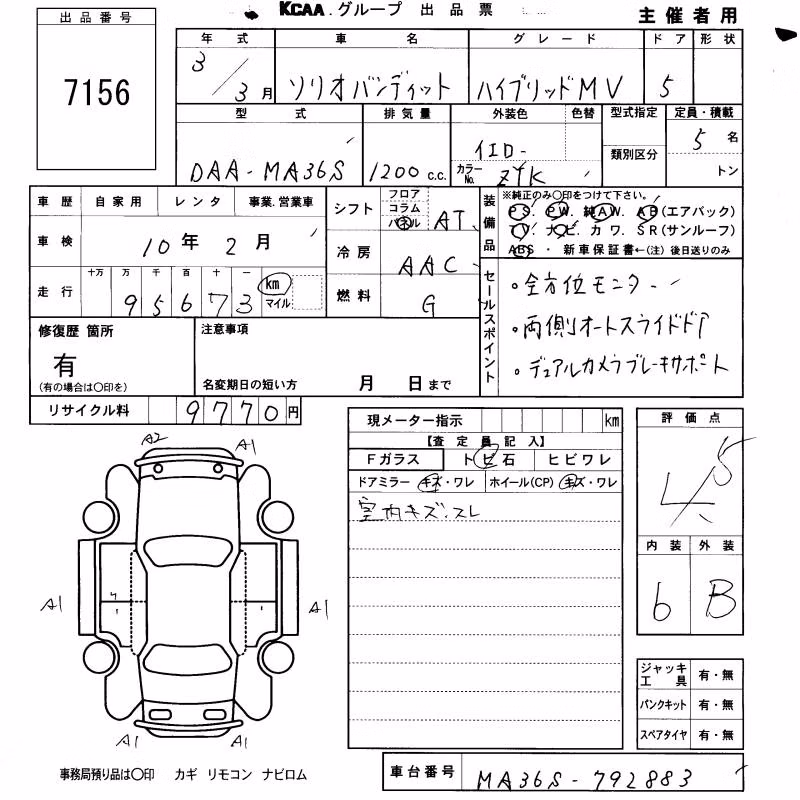 KCAA.グループ 出品票
主催者用
出品番号
7156
年式 車名 グレード ドア 形状
3/3月 ソリオバンディット ハイブリッドMV 5
型式 排気量 外装色 色替 型式指定 定員・積載
DAA-MA36S 1200 c.c. イエロー 類別区分 5名
カラーNo. トン
車歴 自家用 レンタ 事業.営業車
車検 10年2月
走行 十万 万 千 百 十 一
95673 km マイル
シフト フロア コラム パネル AT
冷房 AAC
燃料 G
装備品
※純正のみ○印をつけて下さい。
PS. PW. 純AW. AB(エアバック)
TV. ナビ. カワ. SR(サンルーフ)
ABS・新車保証書←(注)後日送りのみ
セールスポイント
・全方位モニター
・両側オートスライドドア
・デュアルカメラブレーキサポート
修復歴 箇所
有
(有の場合は○印を)
注意事項
名変期日の短い方 月 日まで
リサイクル料 9770円
現メーター指示 km
【査定員記入】
Fガラス トビ石 ヒビワレ
ドアミラー キズ・ワレ ホイール(CP) キズ・ワレ
室内キズ.スレ
評価点
内装 外装
6 B
A2 A1
A1 A1
A1 A1
ジャッキ工具 有・無
パンクキット 有・無
スペアタイヤ 有・無
事務局預り品は○印 カギ リモコン ナビロム
車台番号 MA36S-792883